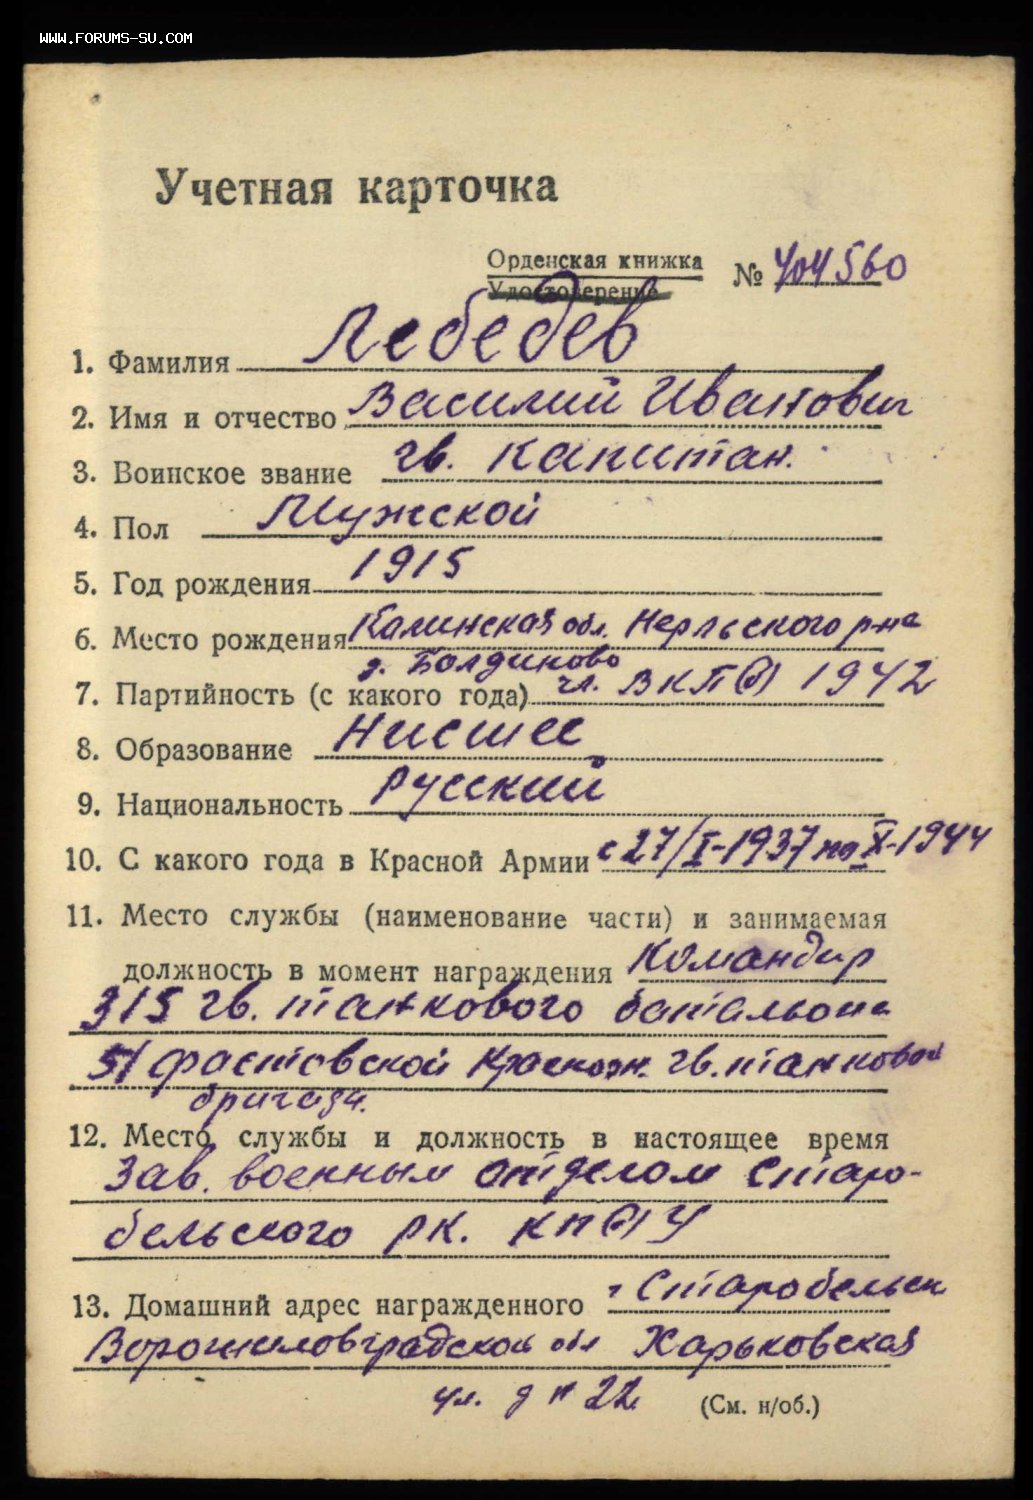 WWW.FORUMS-SU.COM
Учетная карточка
Орденская книжка № 404560
Удостоверение
1. Фамилия Лебедев
2. Имя и отчество Василий Иванович
3. Воинское звание гв. капитан.
4. Пол Мужской
5. Год рождения 1915
6. Место рождения Калинская обл. Нерльского р-на
д. Болдиново
7. Партийность (с какого года) чл. ВКП(б) 1942
8. Образование Нисшее
9. Национальность русский
10. С какого года в Красной Армии с 27/I-1937 по X-1944
11. Место службы (наименование части) и занимаемая
должность в момент награждения Командир
315 гв. танкового батальона
51 фастовской Краснозн. гв. танковой
бригады.
12. Место службы и должность в настоящее время
Зав. военным отделом Старо-
бельского рк. КП(б)У
13. Домашний адрес награжденного г Старобельск
Ворошиловградской обл Харьковская
ул. д № 22 (См. н/об.)